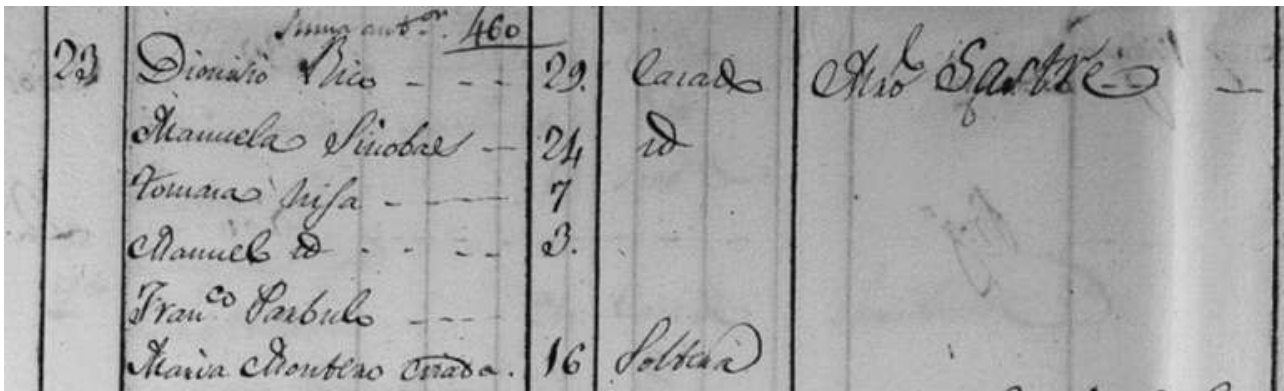 Suma antor. 460
23 Dionisio Rico - - - 29. Casado Mro Sastre
Manuela Sinobas - 24 id
Tomasa hija - - - 7
Manuel id - - - - 3.
Franco Parbulo - - -
Maria Montero criada. 16 Soltera